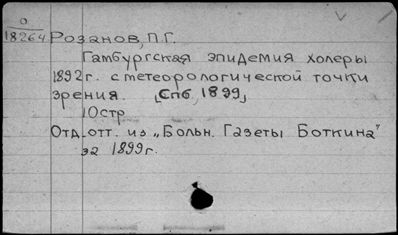 0
18264 Розанов, П.Г.
Гамбургская эпидемия холеры
1892 г. с метеорологической точки
зрения. [Спб, 1899]
10стр
Отд. отт. из „Больн. Газеты Боткина"
за 1899 г.